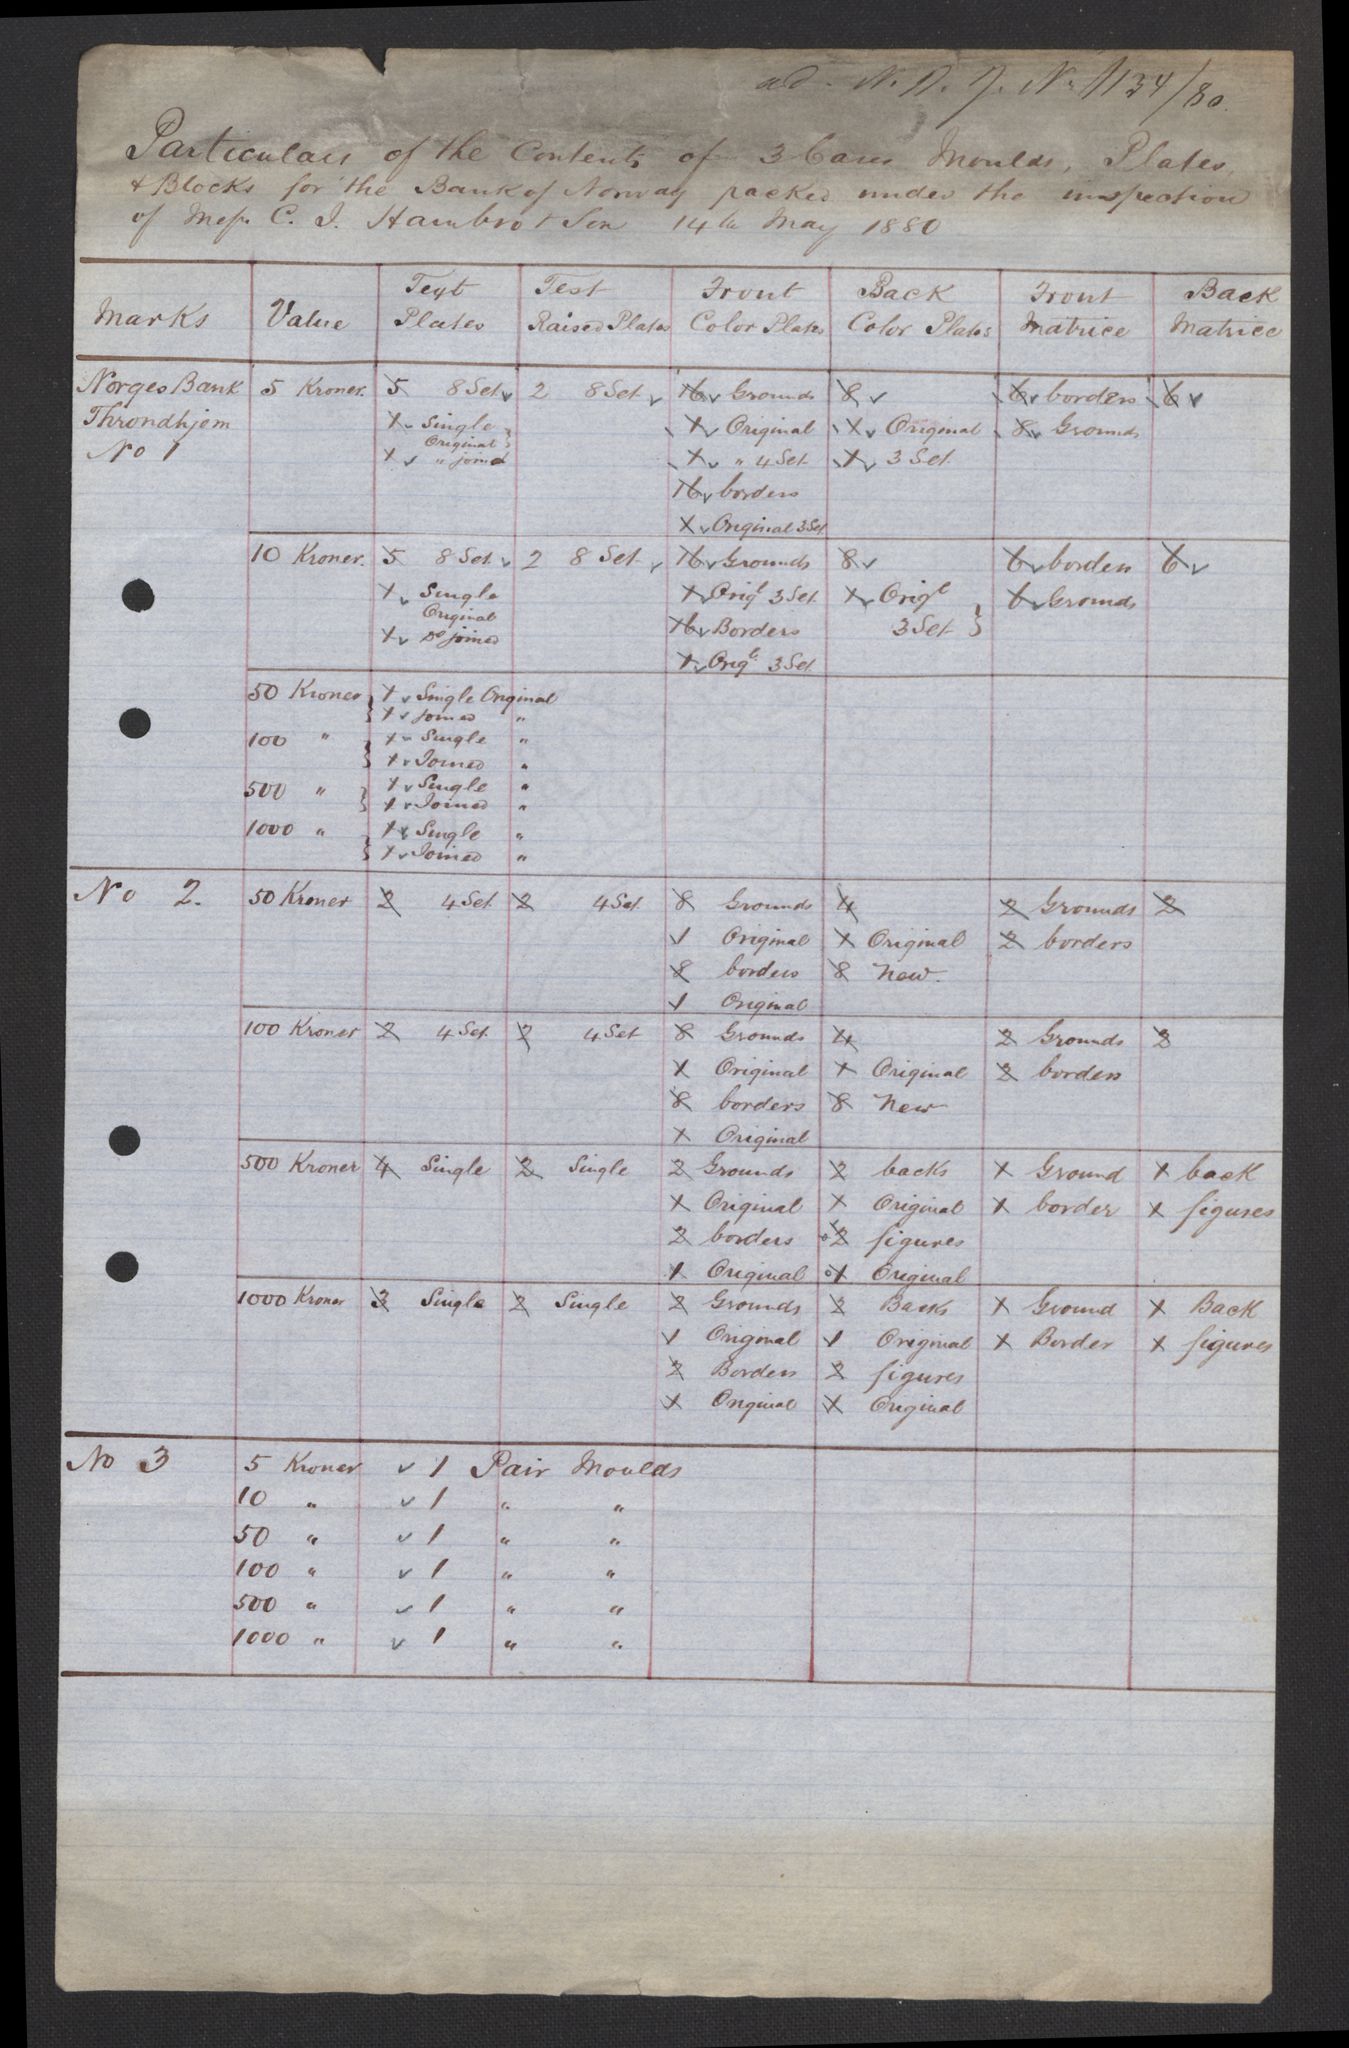 ad. N. D. J. No 1134/80.
Particulars of the Contents of 3 Cases Moulds, Plates,
& Blocks for the Bank of Norway packed under the inspection
of Mess. C. J. Hambro & Son 14th May 1880
Marks | Value | Text Plates | Test Raised Plates | Front Color Plates | Back Color Plates | Front Matrice | Back Matrice
Norges Bank | 5 Kroner. | 5 8 Set | 2 8 Set | 16 Grounds | 8 | 6 borders | 6
Throndhjem | 1 Single Original | 1 Original | 1 Original | 8 Grounds
No 1 | 1 " joined | 1 " 4 Set | 1 3 Set
16 borders
1 Original 3 Set
10 Kroner. | 5 8 Set | 2 8 Set | 16 Grounds | 8 | 6 borders | 6
1 Single Original | 1 Origl 3 Set | 1 Origl 3 Set | 6 Grounds
1 Do joined | 16 Borders
1 Origl 3 Set
50 Kroner | 1 Single Original
1 joined "
100 " | 1 Single "
1 Joined "
500 " | 1 Single "
1 Joined "
1000 " | 1 Single "
1 Joined "
No 2. | 50 Kroner | 2 4 Set | 2 4 Set | 8 Grounds | 4 | 2 Grounds | 2
1 Original | 1 Original | 2 borders
8 borders | 8 New.
1 Original
100 Kroner | 2 4 Set | 2 4 Set | 8 Grounds | 4 | 2 Grounds | 2
1 Original | 1 Original | 2 borders
8 borders | 8 New
1 Original
500 Kroner | 4 Single | 2 Single | 2 Grounds | 2 backs | 1 Ground | 1 back
1 Original | 1 Original | 1 border | 1 figures
2 borders | 2 figures
1 Original | 1 Original
1000 Kroner | 3 Single | 2 Single | 2 Grounds | 2 Backs | 1 Ground | 1 Back
1 Original | 1 Original | 1 Border | 1 figures
2 Borders | 2 figures
1 Original | 1 Original
No 3 | 5 Kroner | 1 Pair Moulds
10 " | 1 " "
50 " | 1 " "
100 " | 1 " "
500 " | 1 " "
1000 " | 1 " "